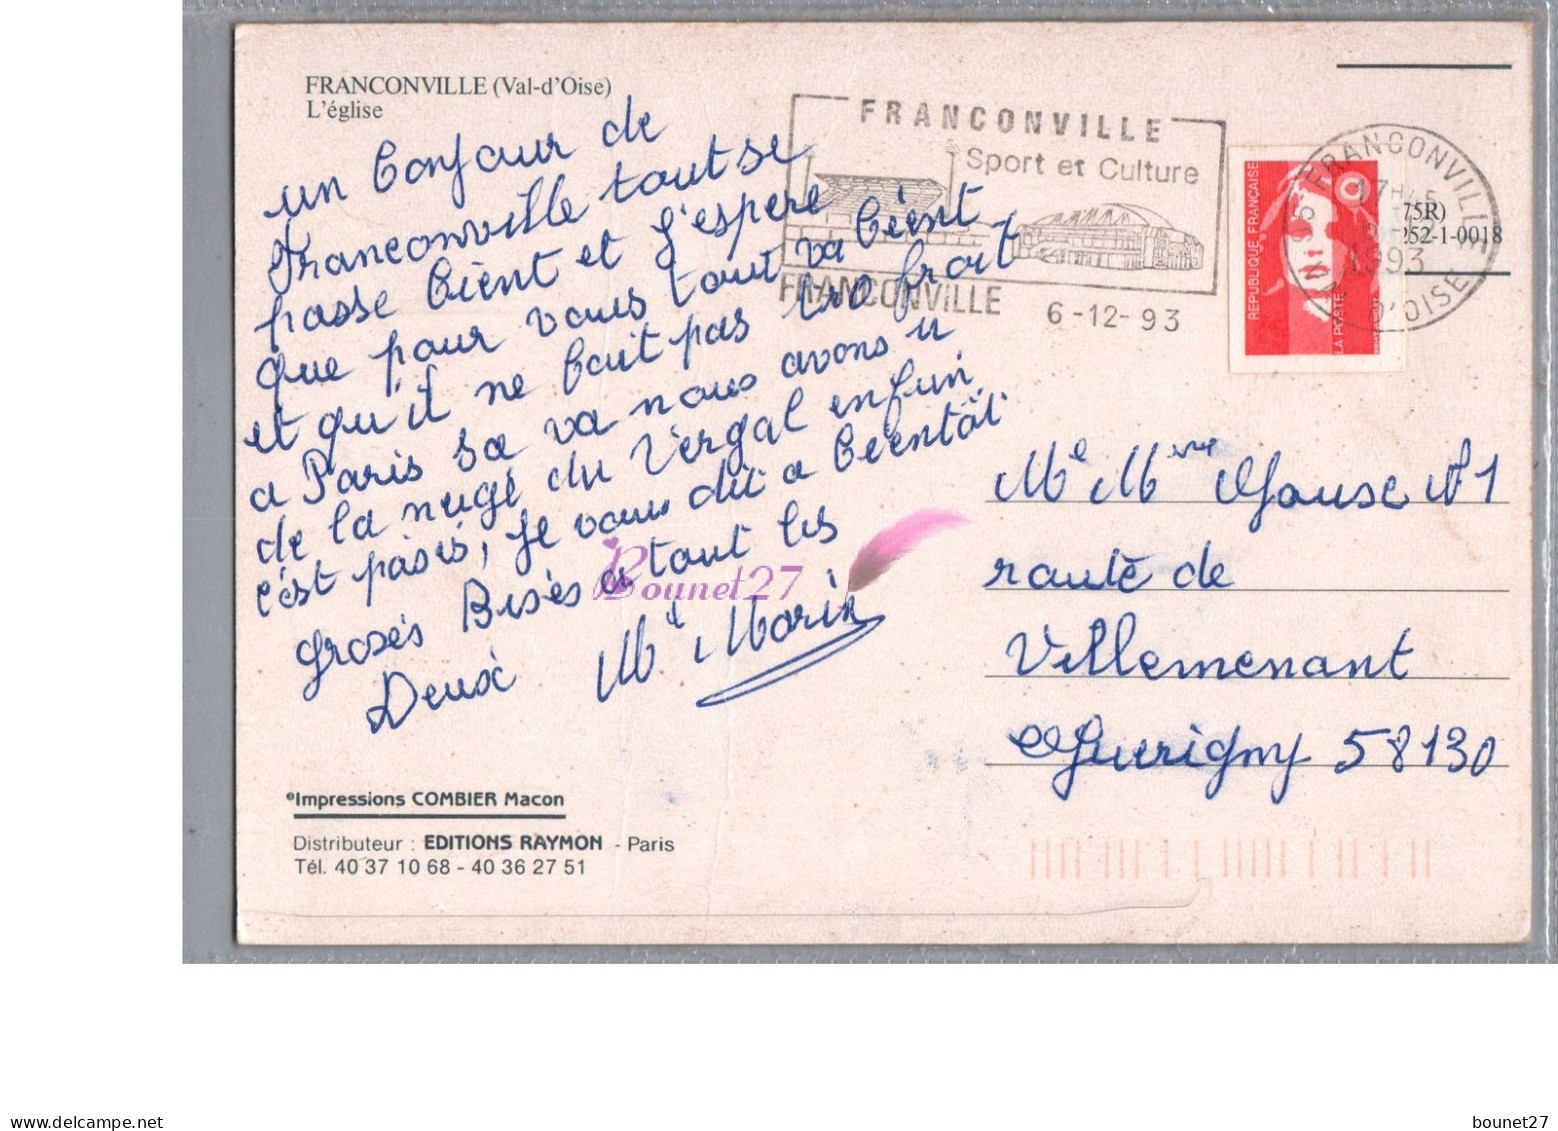 FRANCONVILLE (Val-d'Oise)
L'église
un Bonjour de
Franconville tout se
passe bient et J'espere
que pour vous tout va bient
et qu'il ne bait pas tro froit
a Paris sa va nous avons u
de la nuge du Vergal enfin
c'est pases, Je vous dit a bientôt
groses Bises a tout les
Deux Me Morin
FRANCONVILLE
Sport et Culture
FRANCONVILLE 6-12-93
REPUBLIQUE FRANÇAISE
LA POSTE
95 FRANCONVILLE
17H
1993
VAL D'OISE
75R)
252-1-0018
Me Mme N° 1
route de
Villemenant
Guerigny 58130
Impressions COMBIER Macon
Distributeur : EDITIONS RAYMON - Paris
Tél. 40 37 10 68 - 40 36 27 51
Bounet27
bounet27